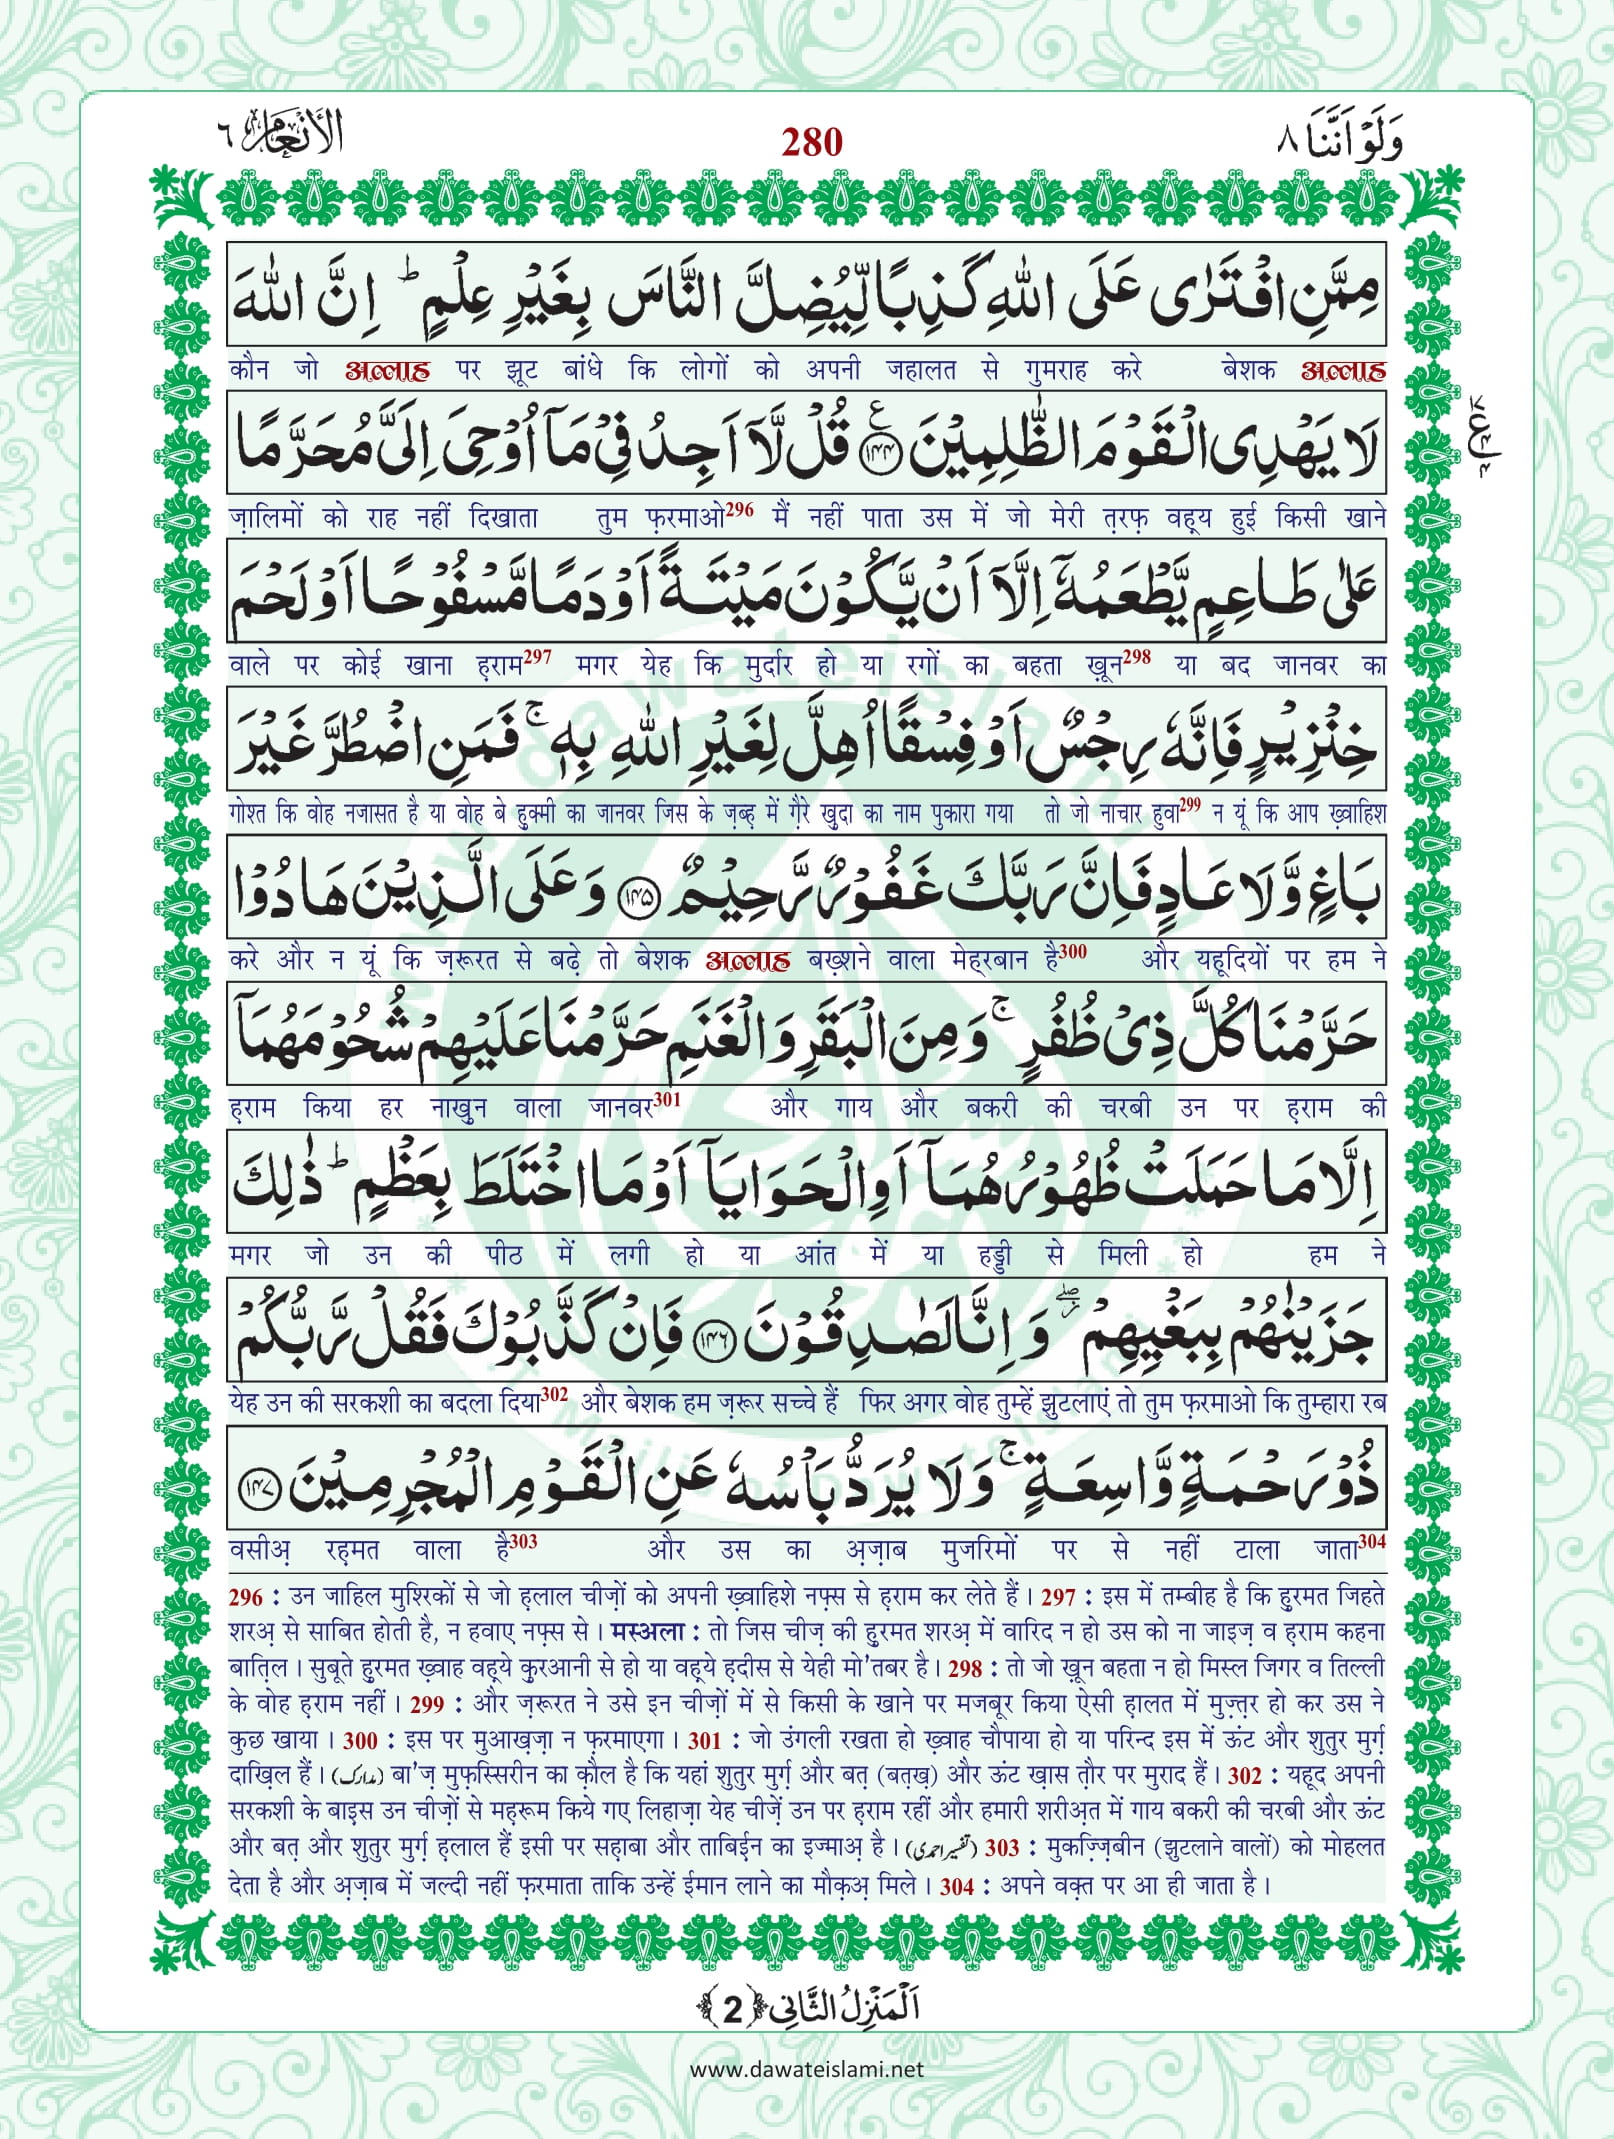 وَلَوْ اَنَّنَا ٨
280
الْاَنْعَام ٦
مِمَّنِ افْتَرٰى عَلَى اللّٰهِ كَذِبًا لِّیُضِلَّ النَّاسَ بِغَیْرِ عِلْمٍ ؕ اِنَّ اللّٰهَ
कौन जो अल्लाह पर झूट बांधे कि लोगों को अपनी जहालत से गुमराह करे बेशक अल्लाह
لَا یَهْدِی الْقَوْمَ الظّٰلِمِیْنَ ﴿۱۴۴﴾ ع قُلْ لَّاۤ اَجِدُ فِیْ مَاۤ اُوْحِیَ اِلَیَّ مُحَرَّمًا
ज़ालिमों को राह नहीं दिखाता तुम फ़रमाओ296 मैं नहीं पाता उस में जो मेरी त़रफ़ वह़्य हुई किसी खाने
عَلٰى طَاعِمٍ یَّطْعَمُهٗۤ اِلَّاۤ اَنْ یَّكُوْنَ مَیْتَةً اَوْ دَمًا مَّسْفُوْحًا اَوْ لَحْمَ
वाले पर कोई खाना ह़राम297 मगर येह कि मुर्दार हो या रगों का बहता ख़ून298 या बद जानवर का
خِنْزِیْرٍ فَاِنَّهٗ رِجْسٌ اَوْ فِسْقًا اُهِلَّ لِغَیْرِ اللّٰهِ بِهٖ ۚ فَمَنِ اضْطُرَّ غَیْرَ
गोश्त कि वोह नजासत है या वोह बे हुक्मी का जानवर जिस के ज़ब्ह़ में ग़ैरे ख़ुदा का नाम पुकारा गया तो जो नाचार हुवा299 न यूं कि आप ख़्वाहिश
بَاغٍ وَّ لَا عَادٍ فَاِنَّ رَبَّكَ غَفُوْرٌ رَّحِیْمٌ ﴿۱۴۵﴾ وَ عَلَى الَّذِیْنَ هَادُوْا
करे और न यूं कि ज़रूरत से बढ़े तो बेशक अल्लाह बख़्शने वाला मेहरबान है300 और यहूदियों पर हम ने
حَرَّمْنَا كُلَّ ذِیْ ظُفُرٍ ۚ وَ مِنَ الْبَقَرِ وَ الْغَنَمِ حَرَّمْنَا عَلَیْهِمْ شُحُوْمَهُمَاۤ
ह़राम किया हर नाख़ुन वाला जानवर301 और गाय और बकरी की चरबी उन पर ह़राम की
اِلَّا مَا حَمَلَتْ ظُهُوْرُهُمَاۤ اَوِ الْحَوَایَاۤ اَوْ مَا اخْتَلَطَ بِعَظْمٍ ؕ ذٰلِكَ
मगर जो उन की पीठ में लगी हो या आंत में या हड्डी से मिली हो हम ने
جَزَیْنٰهُمْ بِبَغْیِهِمْ ۖ٘ وَ اِنَّا لَصٰدِقُوْنَ ﴿۱۴۶﴾ فَاِنْ كَذَّبُوْكَ فَقُلْ رَّبُّكُمْ
येह उन की सरकशी का बदला दिया302 और बेशक हम ज़रूर सच्चे हैं फिर अगर वोह तुम्हें झुटलाएं तो तुम फ़रमाओ कि तुम्हारा रब
ذُوْ رَحْمَةٍ وَّاسِعَةٍ ۚ وَ لَا یُرَدُّ بَاْسُهٗ عَنِ الْقَوْمِ الْمُجْرِمِیْنَ ﴿۱۴۷﴾
वसीअ़ रह़मत वाला है303 और उस का अ़ज़ाब मुजरिमों पर से नहीं टाला जाता304
296 : उन जाहिल मुश्रिकों से जो ह़लाल चीज़ों को अपनी ख़्वाहिशे नफ़्स से ह़राम कर लेते हैं। 297 : इस में तम्बीह है कि हु़रमत जिहते
शरअ़ से साबित होती है, न हवाए नफ़्स से। मस्अला : तो जिस चीज़ की हु़रमत शरअ़ में वारिद न हो उस को ना जाइज़ व ह़राम कहना
बात़िल। सुबूते हु़रमत ख़्वाह वह़्ये क़ुरआनी से हो या वह़्ये ह़दीस से येही मो'तबर है। 298 : तो जो ख़ून बहता न हो मिस्ल जिगर व तिल्ली
के वोह ह़राम नहीं। 299 : और ज़रूरत ने उसे इन चीज़ों में से किसी के खाने पर मजबूर किया ऐसी ह़ालत में मुज़्त़र हो कर उस ने
कुछ खाया। 300 : इस पर मुआख़ज़ा न फ़रमाएगा। 301 : जो उंगली रखता हो ख़्वाह चौपाया हो या परिन्द इस में ऊंट और शुतुर मुर्ग़
दाख़िल हैं। (مدارک) बा'ज़ मुफ़स्सिरीन का क़ौल है कि यहां शुतुर मुर्ग़ और बत़ (बत़ख़) और ऊंट ख़ास त़ौर पर मुराद हैं। 302 : यहूद अपनी
सरकशी के बाइस उन चीज़ों से मह़रूम किये गए लिहाज़ा येह चीज़ें उन पर ह़राम रहीं और हमारी शरीअ़त में गाय बकरी की चरबी और ऊंट
और बत़ और शुतुर मुर्ग़ ह़लाल हैं इसी पर सह़ाबा और ताबिई़न का इज्माअ़ है। (تفسیر احمدی) 303 : मुकज़्ज़िबीन (झुटलाने वालों) को मोहलत
देता है और अ़ज़ाब में जल्दी नहीं फ़रमाता ताकि उन्हें ईमान लाने का मौक़अ़ मिले। 304 : अपने वक़्त पर आ ही जाता है।
اَلْمَنْزِلُ الثَّانِی ﴿2﴾
www.dawateislami.net